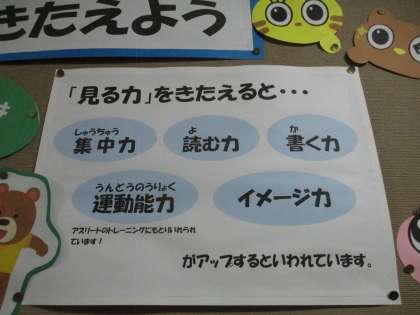 きたえよう
「見る力」をきたえると・・・
しゅうちゅう よ か
集中力 読む力 書く力
うんどうのうりょく
運動能力 イメージ力
アスリートのトレーニングにもとりいれられ
ています！
がアップするといわれています。